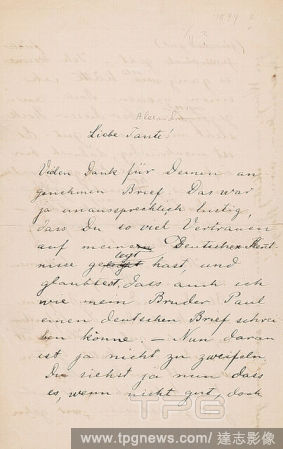 1899
Alexandra
Liebe Tante!
Vielen Dank für Deinen an-
genehmen Brief. Das war
ja unaussprechlich lustig,
dass Du so viel Vertrauen
auf meine Deutschen Kent-
nisse gelegt hast, und
glaubtest, dass auch ich
wie mein Bruder Paul
einen deutschen Brief schrei-
ben könne. – Nun daran
ist ja nicht zu zweifeln
Du siehst ja nun dass
es, wenn nicht gut, doch
TPG
www.tpgnews.com/達志影像